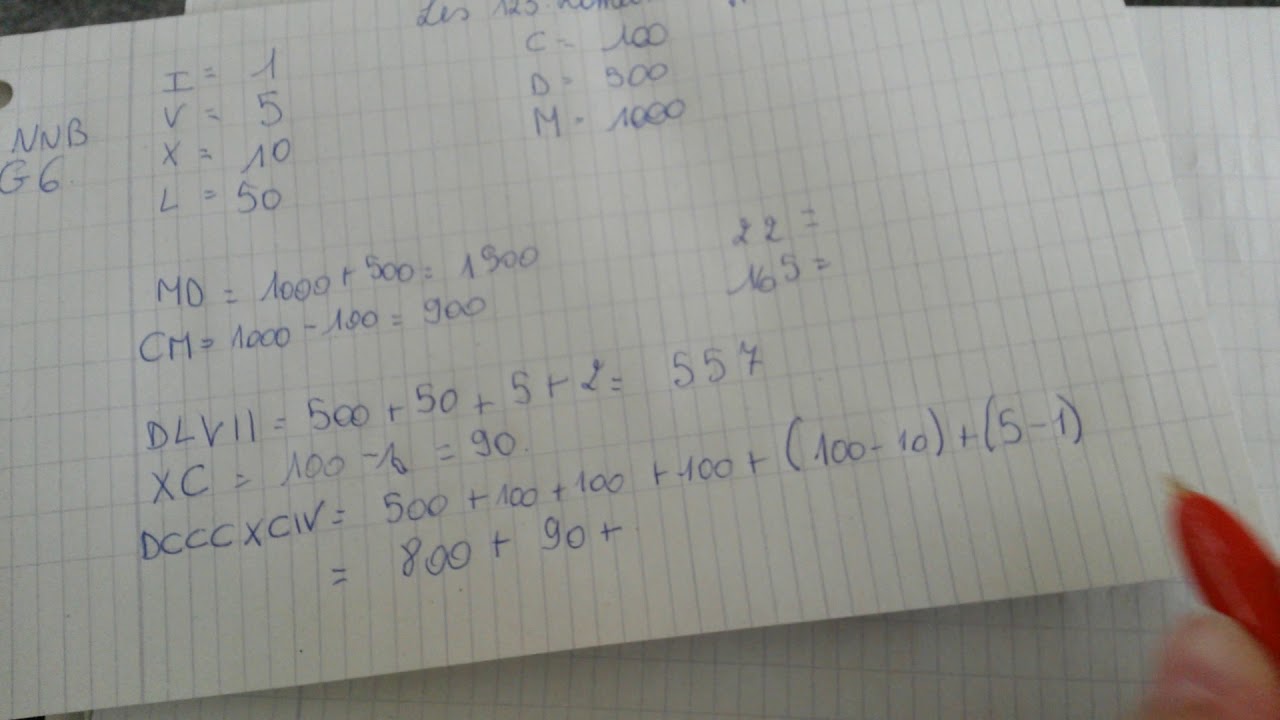 Les 123
I = 1
V = 5
X = 10
L = 50
C = 100
D = 500
M = 1000
NNB
G6.
MD = 1000 + 500 = 1500
CM = 1000 - 100 = 900
22 =
165 =
DLVII = 500 + 50 + 5 + 2 = 557
XC = 100 - 10 = 90.
DCCCXCIV = 500 + 100 + 100 + 100 + (100 - 10) + (5 - 1)
= 800 + 90 +